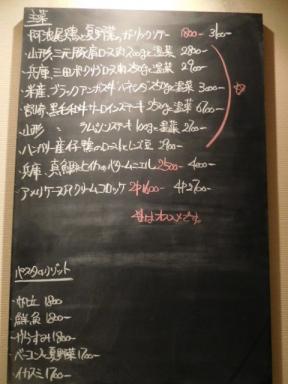 主菜
・阿波尾鶏と夏野菜 ガーリックソテー 1800- 3100-
・山形、三元豚肩ロース肉200gと温菜 2800-
・兵庫 三田ポークロース肉250gと温菜 2900-
・米産 ブラックアンガス牛 250gと温菜 3000-
・宮崎 黒毛和牛サーロインステーキ250gと温菜 6700-
・山形 〃 ラムシンステーキ100gと温菜 2700-
・ハンガリー産仔鴨のローストとレンズ豆 2900-
・兵庫、真鯛とイカのムニエル 2500- 4000-
・アメリケーヌクリームコロッケ 2ヶ1600- 4ヶ2700-
はオススメです。
パスタorリゾット
・帆立 1800
・鮮魚 1800-
・からすみ 1800-
・ベーコンと夏野菜 1700-
・イカスミ 1700-